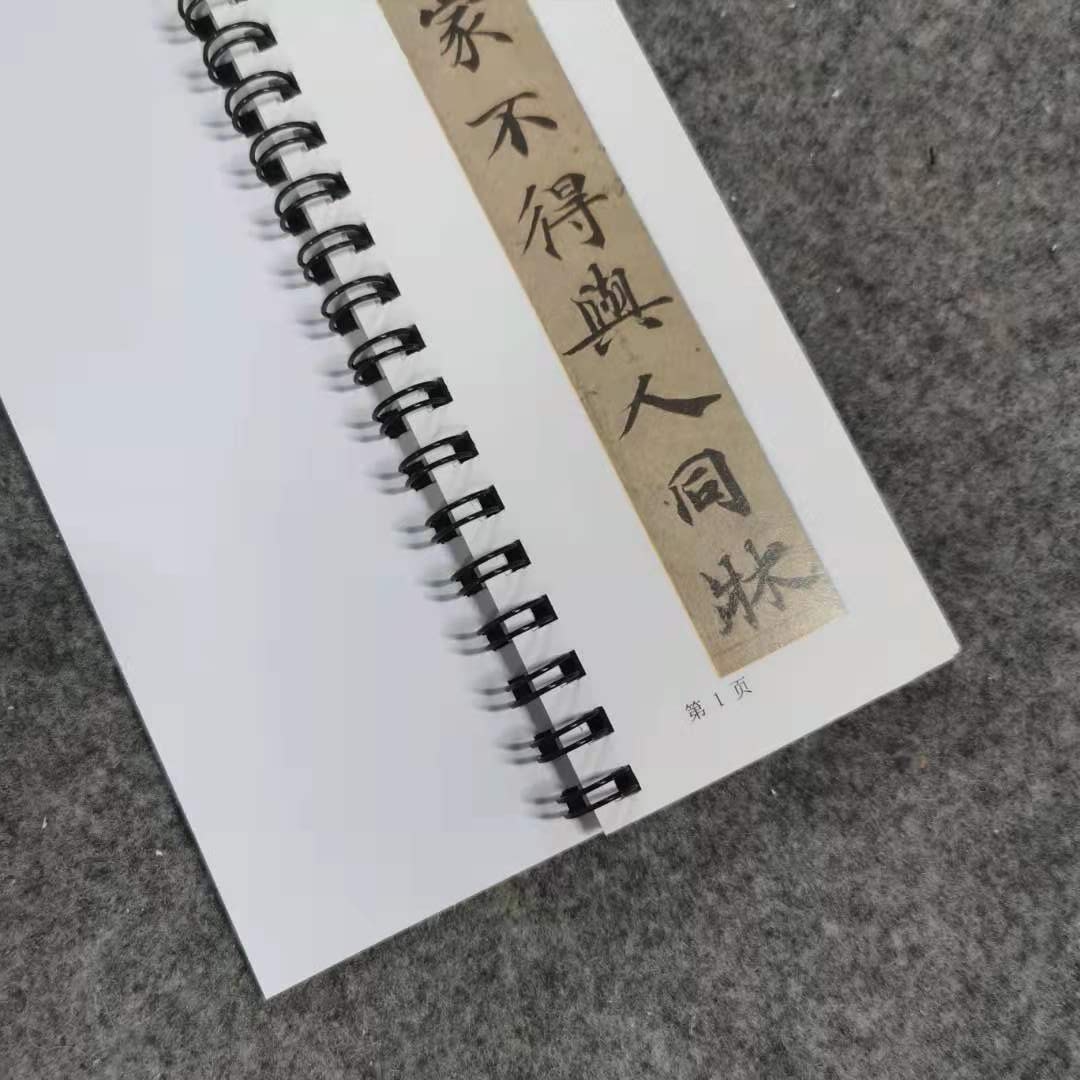 家不得與人同狀
第 1 页